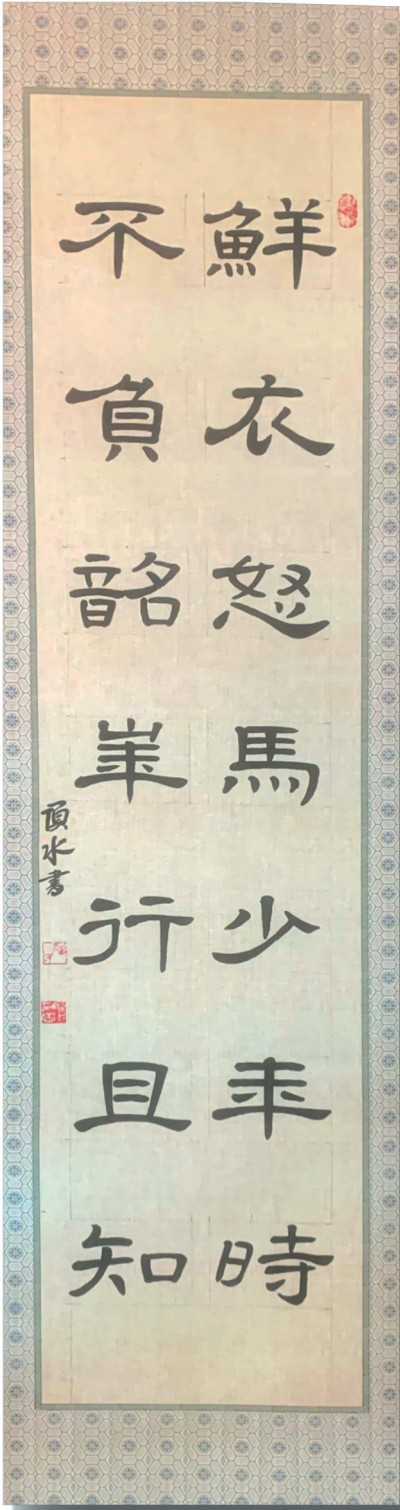 鮮衣怒馬少年時
不負韶華行且知
頁水書